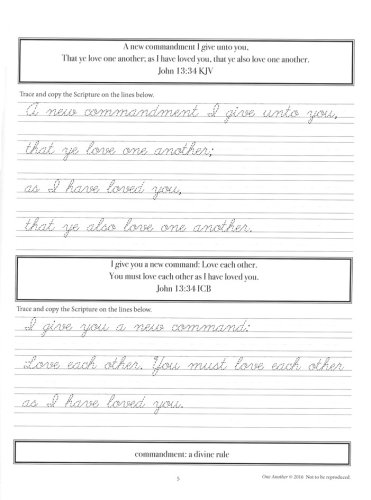 A new commandment I give unto you,
That ye love one another; as I have loved you, that ye also love one another.
John 13:34 KJV
Trace and copy the Scripture on the lines below.
A new commandment I give unto you,
that ye love one another;
as I have loved you,
that ye also love one another.
I give you a new command: Love each other.
You must love each other as I have loved you.
John 13:34 ICB
Trace and copy the Scripture on the lines below.
I give you a new command:
Love each other. You must love each other
as I have loved you.
commandment: a divine rule
5
One Another © 2016 Not to be reproduced.